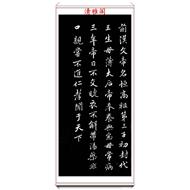 清雅阁
前漢文帝名恒高祖第三子初封代
王生母薄太后帝奉養無怠母常病
三年帝目不交睫衣不解帶湯藥非
口親嘗不進仁孝聞于天下